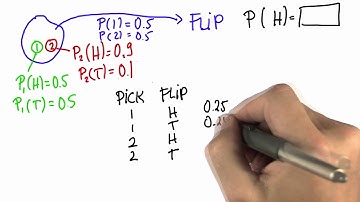 P(1)=0.5
P(2)=0.5
FLIP
P(H)=
1
2
P₂(H)=0.9
P₂(T)=0.1
P₁(H)=0.5
P₁(T)=0.5
PICK FLIP
1 H 0.25
1 T
2 H
2 T